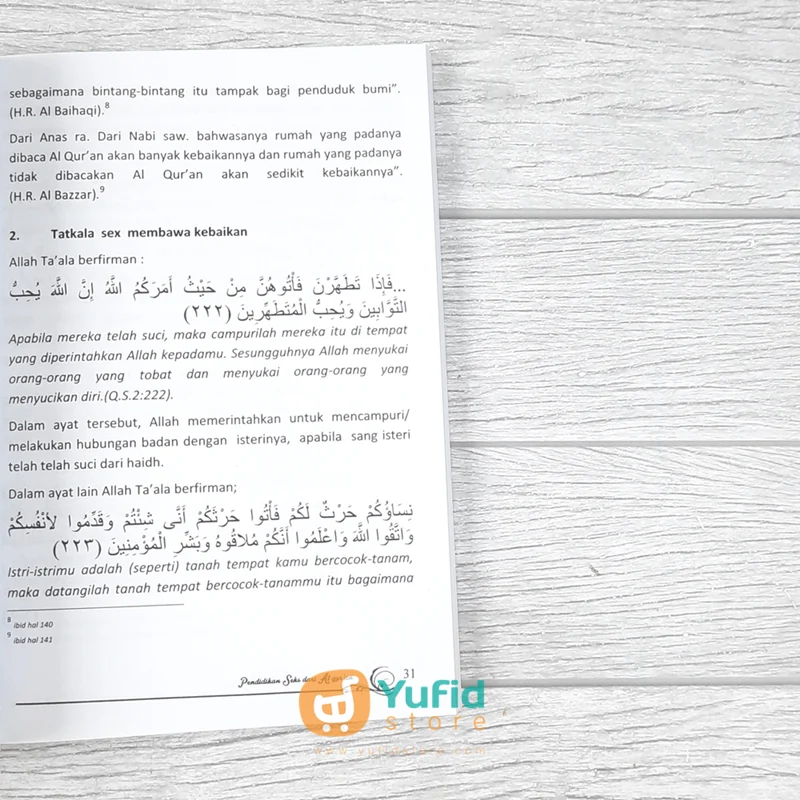 sebagaimana bintang-bintang itu tampak bagi penduduk bumi”.
(H.R. Al Baihaqi).8
Dari Anas ra. Dari Nabi saw. bahwasanya rumah yang padanya
dibaca Al Qur’an akan banyak kebaikannya dan rumah yang padanya
tidak dibacakan Al Qur’an akan sedikit kebaikannya”.
(H.R. Al Bazzar).9
2. Tatkala sex membawa kebaikan
Allah Ta’ala berfirman :
...فَإِذَا تَطَهَّرْنَ فَأْتُوهُنَّ مِنْ حَيْثُ أَمَرَكُمُ اللَّهُ إِنَّ اللَّهَ يُحِبُّ
التَّوَّابِينَ وَيُحِبُّ الْمُتَطَهِّرِينَ (٢٢٢)
Apabila mereka telah suci, maka campurilah mereka itu di tempat
yang diperintahkan Allah kepadamu. Sesungguhnya Allah menyukai
orang-orang yang tobat dan menyukai orang-orang yang
menyucikan diri.(Q.S.2:222).
Dalam ayat tersebut, Allah memerintahkan untuk mencampuri/
melakukan hubungan badan dengan isterinya, apabila sang isteri
telah telah suci dari haidh.
Dalam ayat lain Allah Ta’ala berfirman;
نِسَاؤُكُمْ حَرْثٌ لَكُمْ فَأْتُوا حَرْثَكُمْ أَنَّى شِئْتُمْ وَقَدِّمُوا لأنْفُسِكُمْ
وَاتَّقُوا اللَّهَ وَاعْلَمُوا أَنَّكُمْ مُلاقُوهُ وَبَشِّرِ الْمُؤْمِنِينَ (٢٢٣)
Istri-istrimu adalah (seperti) tanah tempat kamu bercocok-tanam,
maka datangilah tanah tempat bercocok-tanammu itu bagaimana
8 ibid hal 140
9 ibid hal 141
Pendidikan Seks dari 31
Yufid
store